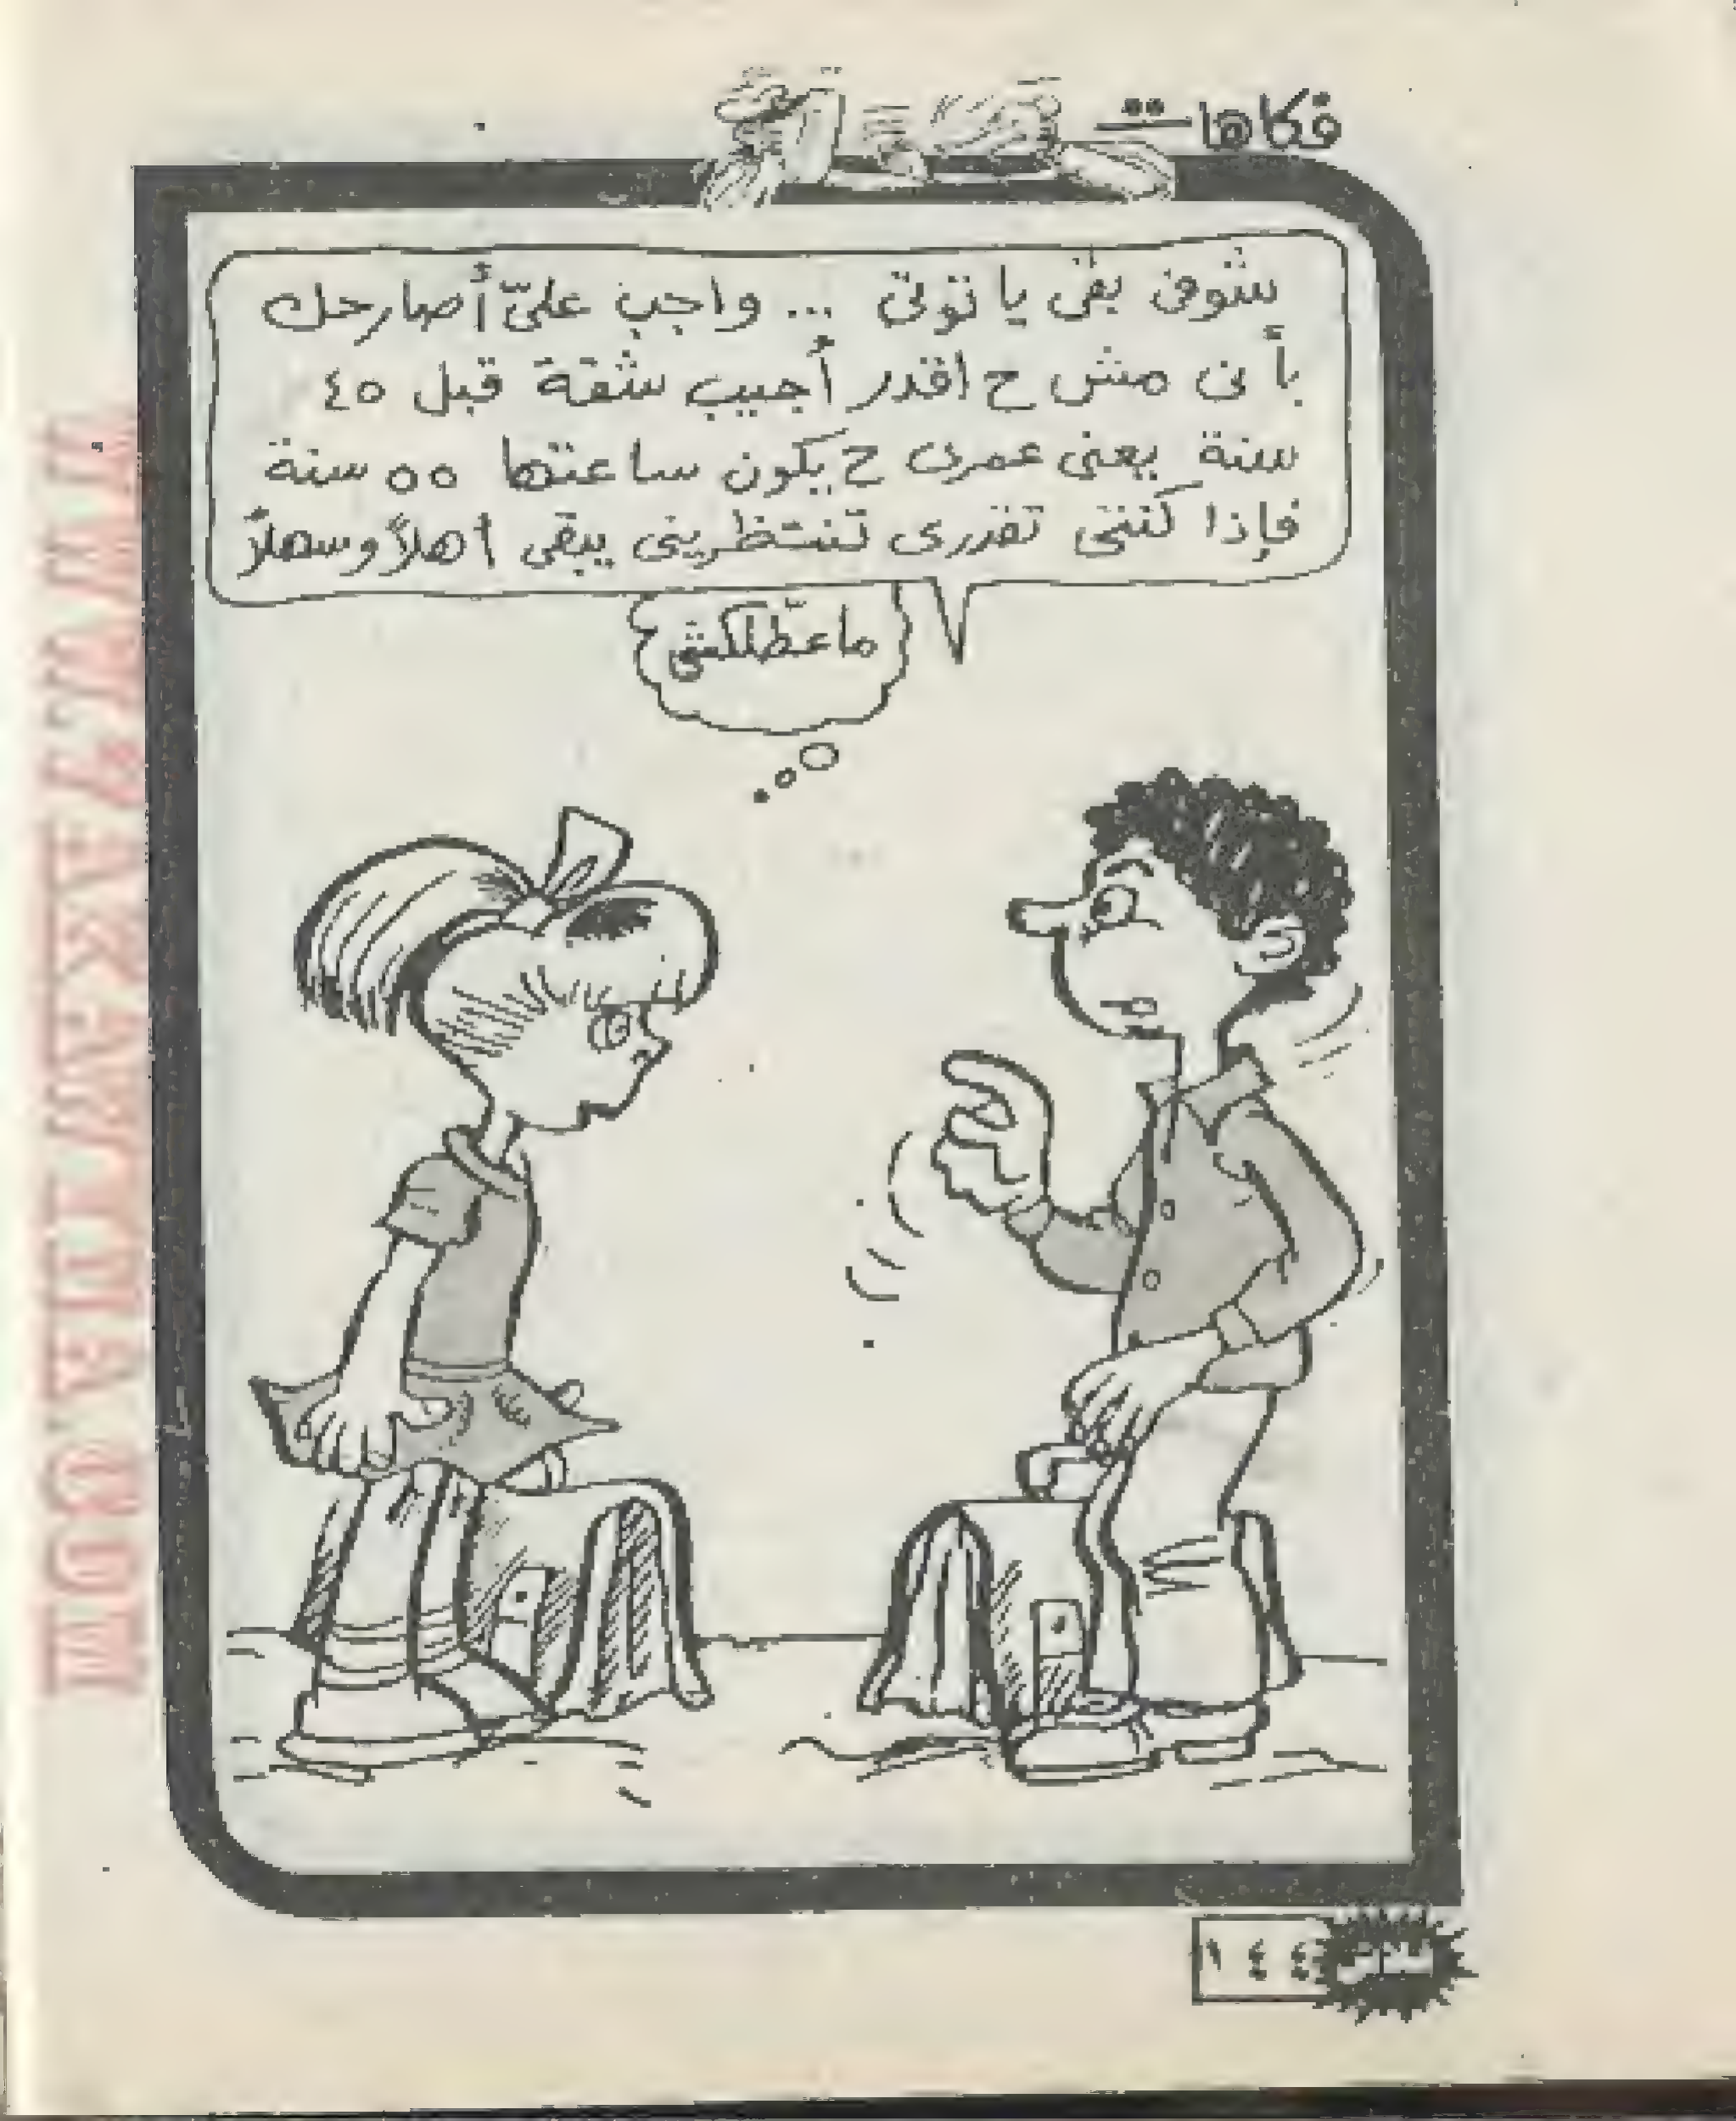 فكاهات
شوفى بقى يا توتى ... واجب علىّ أصارحك
بأنى مش ح اقدر أجيب شقة قبل ٤٥
سنة يعنى عمرى ح يكون ساعتها ٥٥ سنة
فإذا كنتى تقدرى تنتظرينى يبقى أهلاً وسهلاً
ماعطّلكشى
فلاش
١٤٤